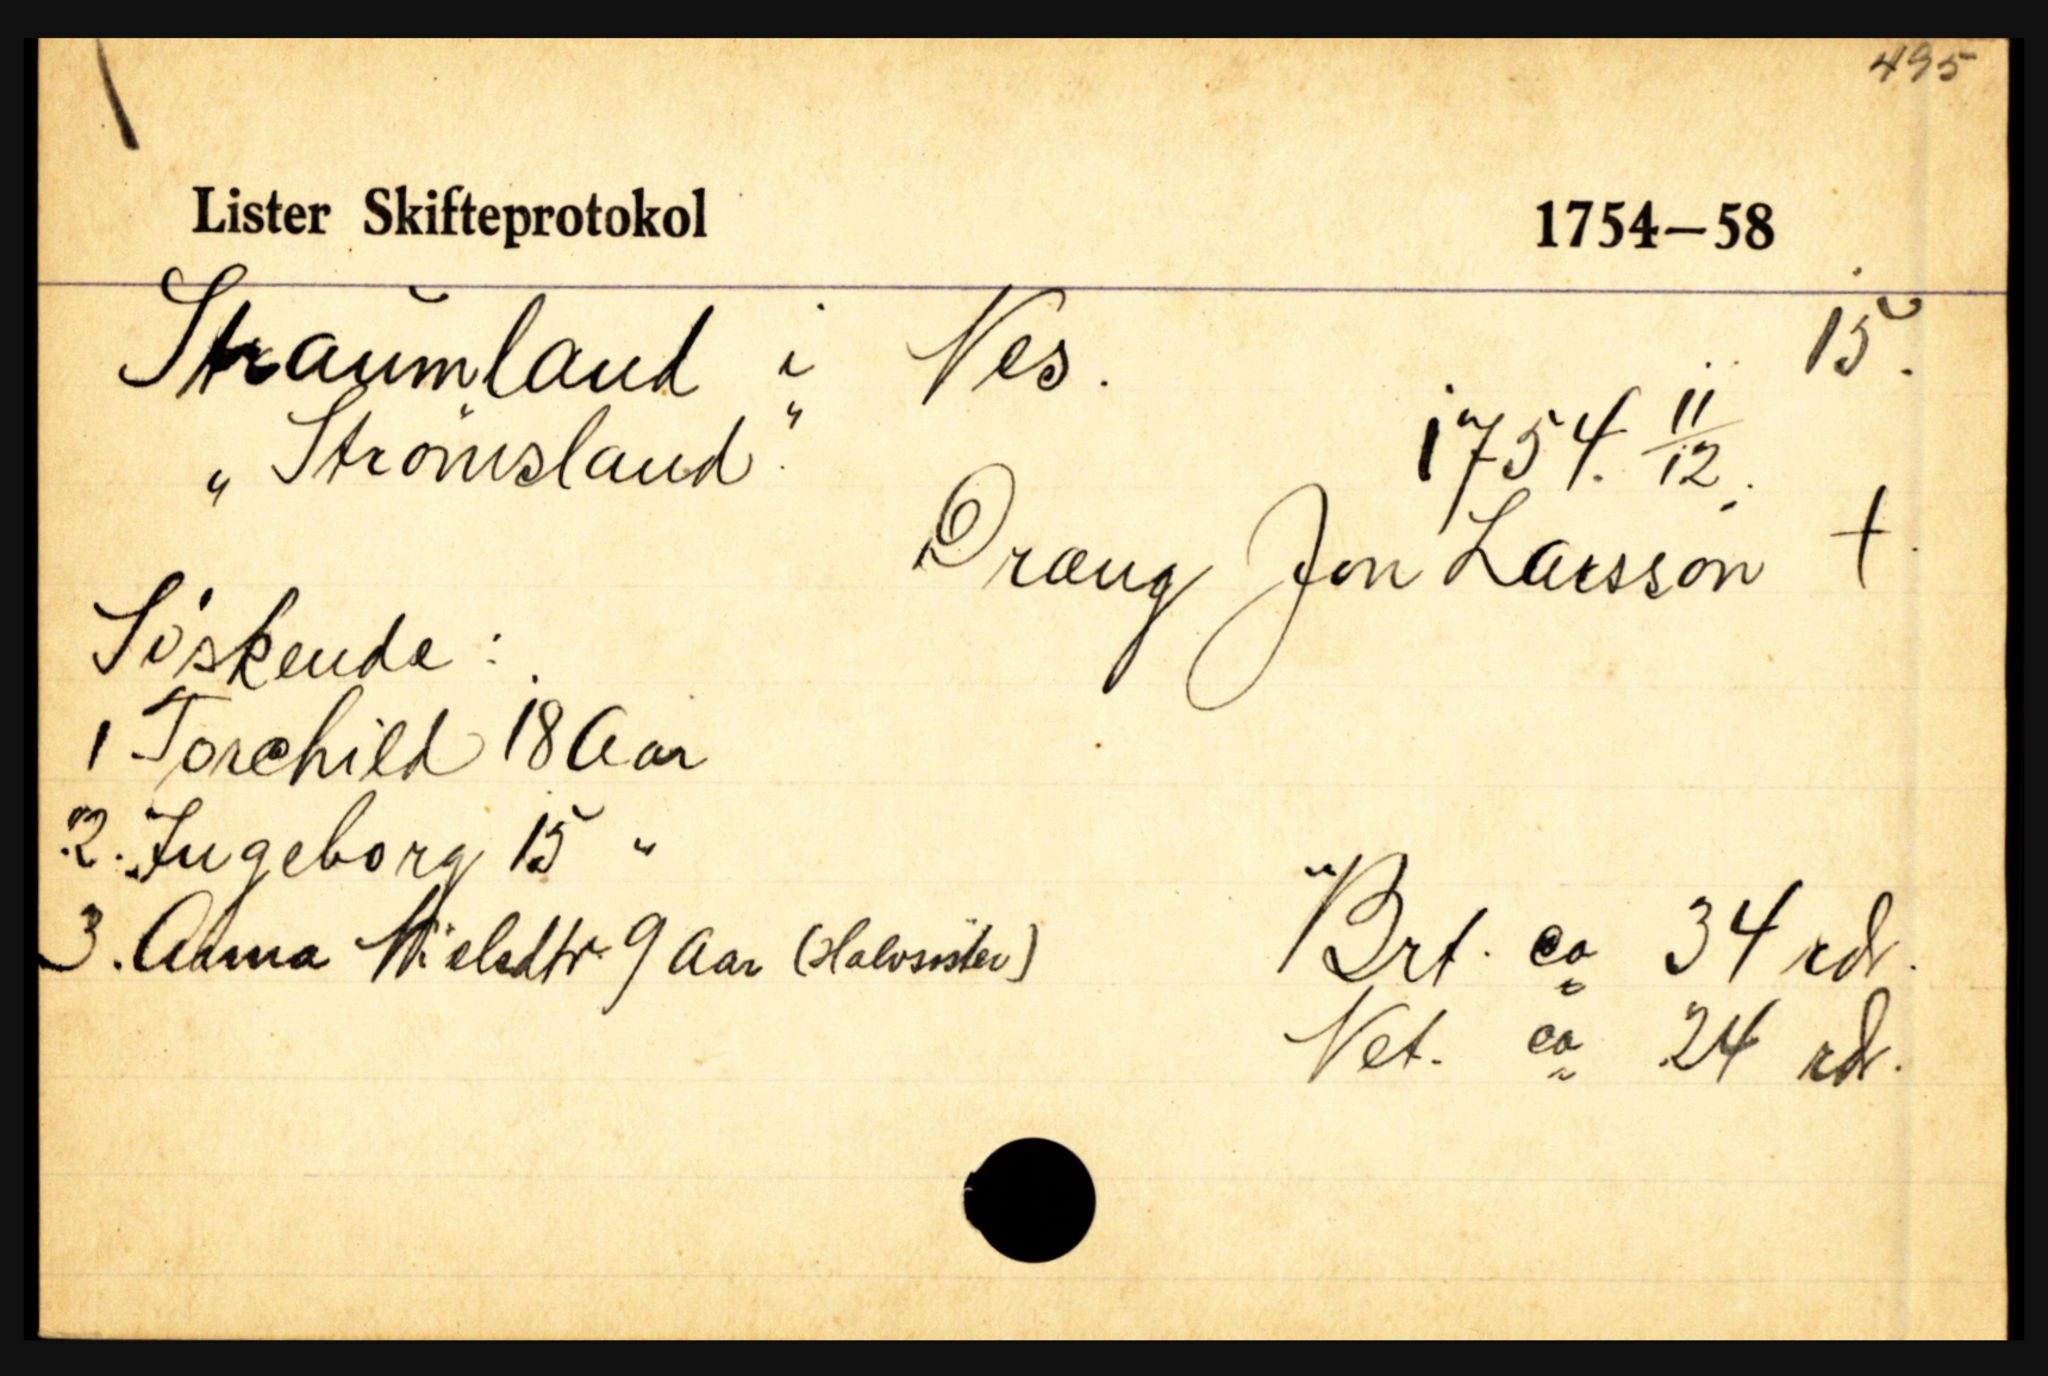 495
Lister Skifteprotokol 1754—58
Straumland i Ves. 15.
"Strömsland" 1754. 11/12.
Dræng Jon Larsson †.
Söskende:
1 Torchild 18 Aar
2. Ingeborg 15 "
3. Anna Nielsdtr 9 Aar (Halvsöster)
Brt. ca 34 rdr.
Net. ca 24 rdr.